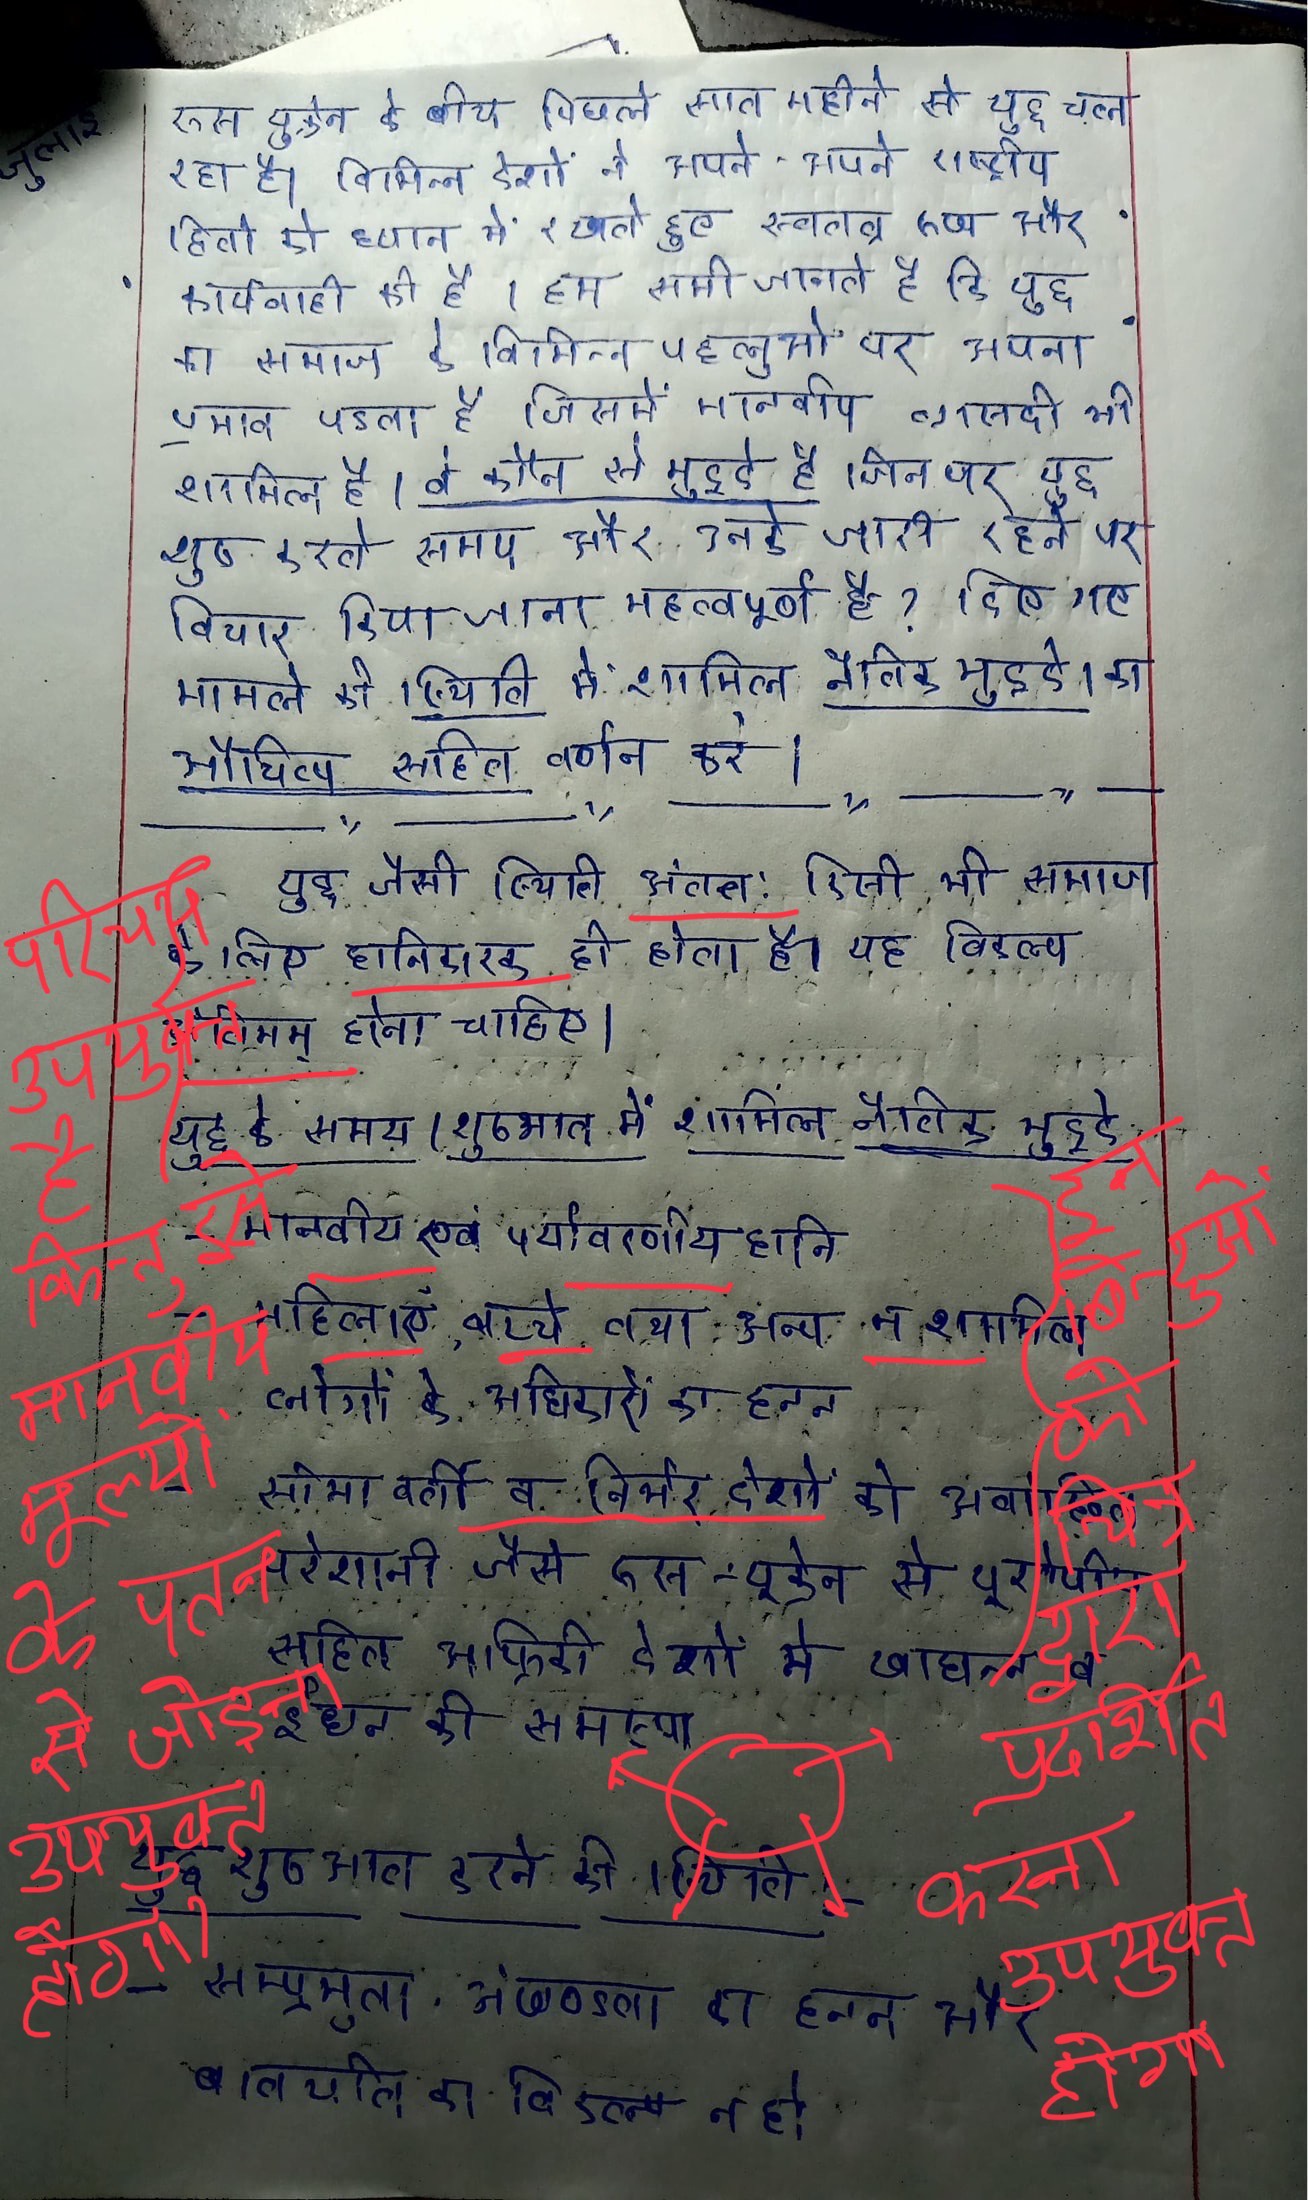 जुलाई
रूस युक्रेन के बीच पिछले सात महीने से युद्ध चल
रहा है। विभिन्न देशों ने अपने-अपने राष्ट्रीय
हितो को ध्यान में रखते हुए स्वतंत्र रूप और
कार्यवाही की है। हम सभी जानते है कि युद्ध
का समाज के विभिन्न पहलुओं पर अपना
प्रभाव पडता है जिसमें मानवीय त्रासदी भी
शामिल है। वे कौन से मुद्दे है जिन पर युद्ध
शुरू करते समय और उनके जारी रहने पर
विचार किया जाना महत्वपूर्ण है? दिए गए
मामले की स्थिति में शामिल नैतिक मुद्दो का
औचित्य सहित वर्णन करे।
युद्ध जैसी स्थिति अंततः किसी भी समाज
के लिए हानिकारक ही होता है। यह विकल्प
अंतिमम् होना चाहिए।
युद्ध के समय/शुरूआत में शामिल नैतिक मुद्दे
- मानवीय एवं पर्यावरणीय हानि
- महिलाएं, बच्चे तथा अन्य न शामिल
लोगों के अधिकारों का हनन
- सीमावर्ती व निर्भर देशों को अवांछित
परेशानी जैसे रूस-यूक्रेन से यूरोपीय
सहित अफ्रिकी देशों में खाद्यान्न व
ईंधन की समस्या
युद्ध शुरूआत करने की स्थिति :-
- सम्प्रभुता, अंखण्डता का हनन और
बातचीत का विकल्प न हो
परिचय
उपयुक्त
है
किन्तु इसे
मानवीय
मूल्यों
के पतन
से जोड़ना
उपयुक्त
होगा।
इन
बिन्दुओं
को
चित्र
द्वारा
प्रदर्शित
करना
उपयुक्त
होगा